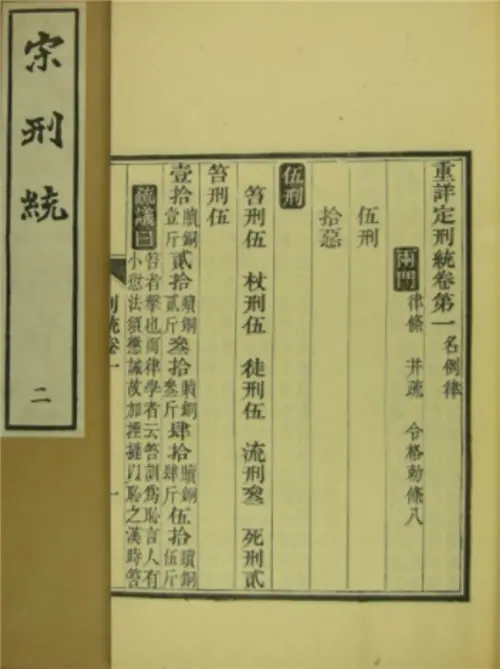 宋刑統
二
重詳定刑統卷第一 名例律
兩門 律條 并疏 令格勑條八
伍刑
拾惡
伍刑
笞刑伍 杖刑伍 徒刑伍 流刑叄 死刑貳
笞刑伍
壹拾贖銅壹斤貳拾贖銅貳斤叄拾贖銅叄斤肆拾贖銅肆斤伍拾贖銅伍斤
疏議曰 笞者擊也而律學者云笞訓爲恥言人有
小愆法須懲誡故加捶撻以恥之漢時笞
刑統卷一 一